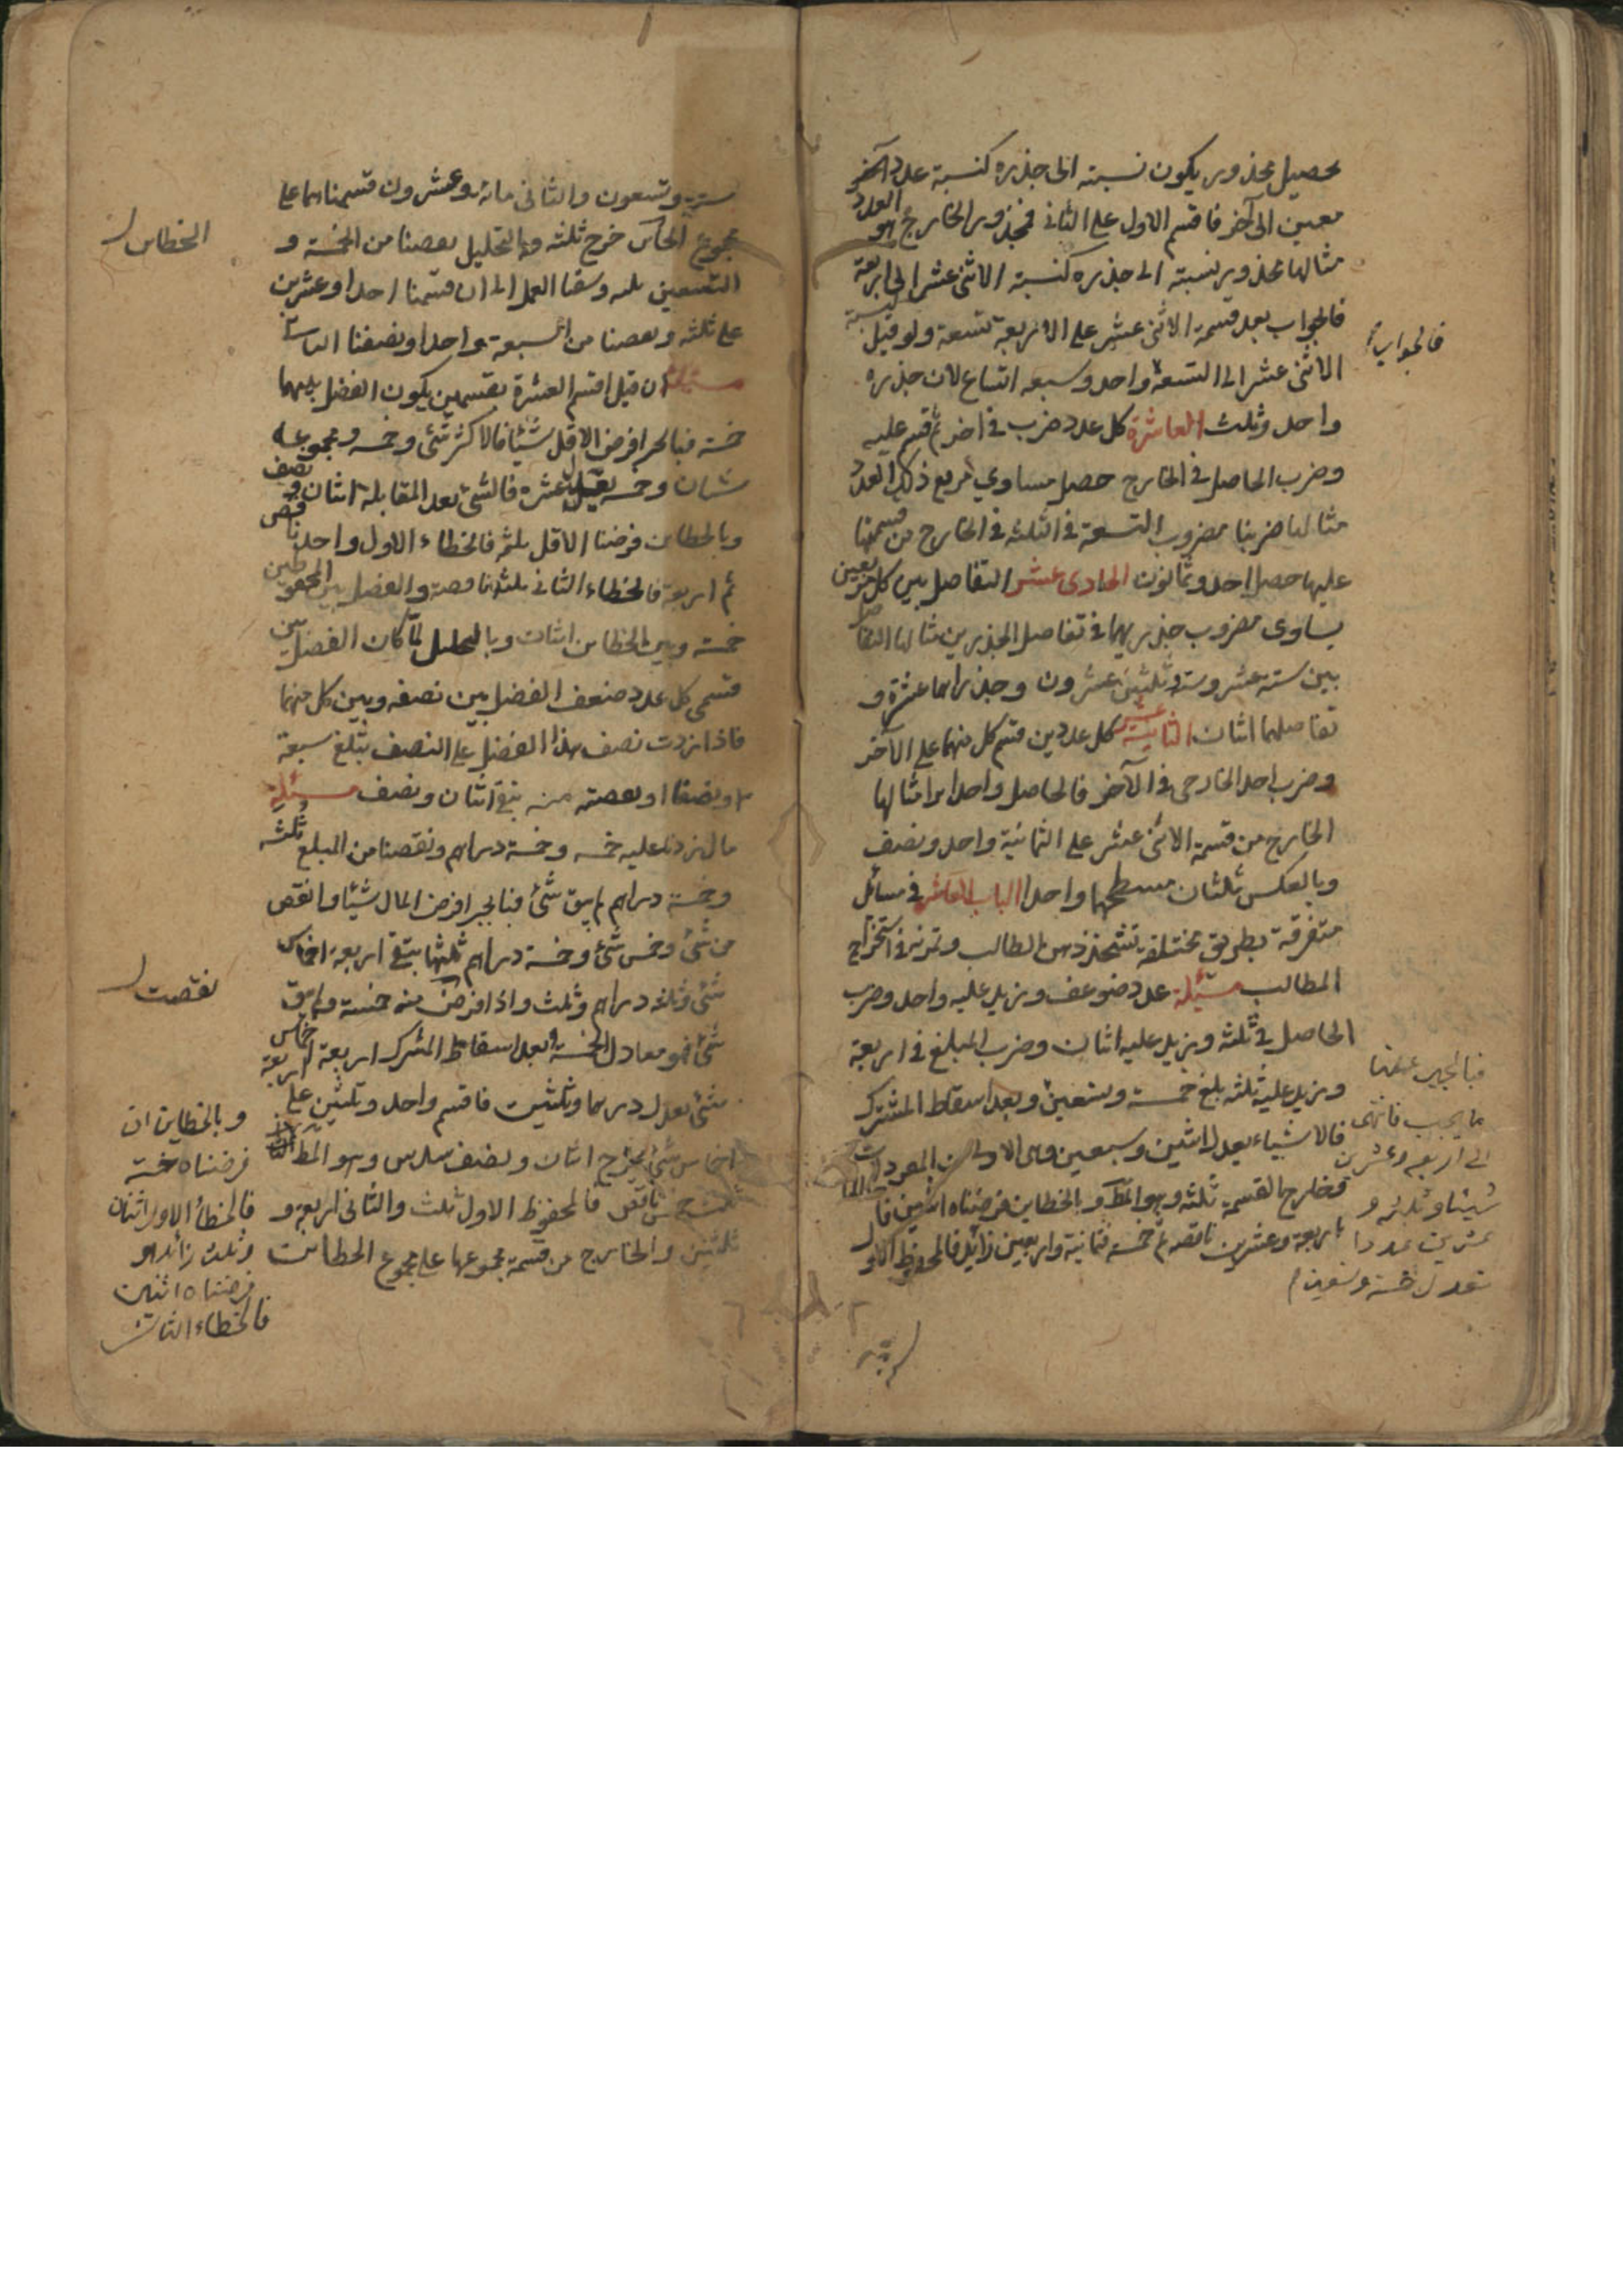 تحصيل مجذور يكون نسبته الى جذره كنسبة عدد آخر
معين الى آخر فاقسم الاول على الثانى فمجذور الخارج هو العدد
مثالها مجذور نسبته الى جذره كنسبة الاثنى عشر الى اربعة
فالجواب بعد قسمة الاثنى عشر على الاربعة تسعة ولو قيل كنسبة
الاثنى عشر الى التسعة واحد وسبعه اتساع لان جذره
فالجواب
واحد وثلث العاشرة كل عدد ضرب فى اخر ثم قسم عليه
وضرب الحاصل فى الخارج حصل مساوي مربع ذلك العدد
مثالها ضربنا مضروب التسعة فى الثلثة فى الخارج من قسمتها
عليها حصل احد وثمانون الحادى عشر التفاضل بين كل مربعين
يساوى مضروب جذريهما فى تفاضل الجذرين مثالها التفاضل
بين ستة عشر وستة وثلثين عشرون وجذراهما عشرة و
تفاضلهما اثنان الثانية عشر كل عددين قسم كل منهما على الآخر
وضرب احد الخارجى فى الآخر فالحاصل واحد ابدا مثالها
الخارج من قسمة الاثنى عشر على الثمانية واحد ونصف
وبالعكس ثلثان مسطحهما واحد الباب العاشر فى مسائل
متفرقة بطريق مختلفه تشحذ ذهن الطالب وتمرنه فى استخراج
المطالب مسئلة عدد ضوعف وزيد عليه واحد وضرب
الحاصل فى ثلثة وزيد عليه اثنان وضرب المبلغ فى اربعة
وزيد عليه ثلثه بلغ خمسة وتسعين وبعد اسقاط المشترك
فالاشياء يعدل اثنين وسبعين وهى الاولى من المفردات
وخارج القسمة ثلثه وهو المط وبالخطاين فرضناه اثنين فا
باربعة وعشرين ناقصه ثم خمسة فثمانية واربعين زائد فالمحفوظ الاول
فبالجبر عملنا
ما يجب فانتهى
الى اربعه وعشرين
شيئا وثلثه و
عشرين عددا
تعدل خمسة وتسعين
ستة وتسعون والثانى مائه وعشرون قسمناهما على
مجموع خرج ثلثه وبالتحليل نقصنا من الخمسة و
الخطاين
التسعين ثلثه وسقنا العمل الى ان قسمنا احدا وعشرين
على ثلثه ونقصنا من السبعة واحدا ونصفنا الباقى
مسئلة ان قيل اقسم العشرة بقسمين يكون الفضل بينهما
خمسة فبالجبر افرض الاقل شيئا فالاكثر شئ وخمسه ومجموعه
شيئان وخمسه يعدل عشره فالشئ بعد المقابلة اثنان ونصف
وبالخطاين فرضنا الاقل ثلثه فالخطاء الاول واحد ناقص
ثم اربعة فالخطاء الثانى ثلثه ناقصة والفضل بين المحفوظين
خمسة وبين الخطاين اثنان وبالتحليل لما كان الفضل بين
قسمى كل عدد ضعف الفضل بين نصفه وبين كل منهما
فاذا زدت نصف هذا الفضل على النصف يبلغ سبعة
ونصفا او نقصته منه يبقى اثنان ونصف مسئلة
مال زدنا عليه خمسه وخمسة دراهم ونقصنا من المبلغ ثلثه
وخمسة دراهم لم يبق شئ فبالجبر افرض المال شيئا وانقص
من شئ وخمس شئ وخمسة دراهم ثلثها يبقى اربعة اخماس
شئ وثلثه دراهم وثلث واذا نقصت منه خمسة ولم يبق
نقصت
شئ فهو معادل الخمسة وبعد اسقاط المشترك اربعة اخماس
شئ تعدل درهما وثلثين فاقسم واحد وثلثين على اربعة
اخماس شئ يخرج اثنان ونصف سدس وهو المط
ثلث خمس ناقص فالمحفوظ الاول ثلث والثانى اربعة و
ثلثين والخارج من قسمة مجموعها على مجموع الخطاين
وبالخطاين ان
فرضناه خمسة
فالخطاء الاول اثنان
وثلث زائد او
فرضناه اثنين
فالخطاء الثانى